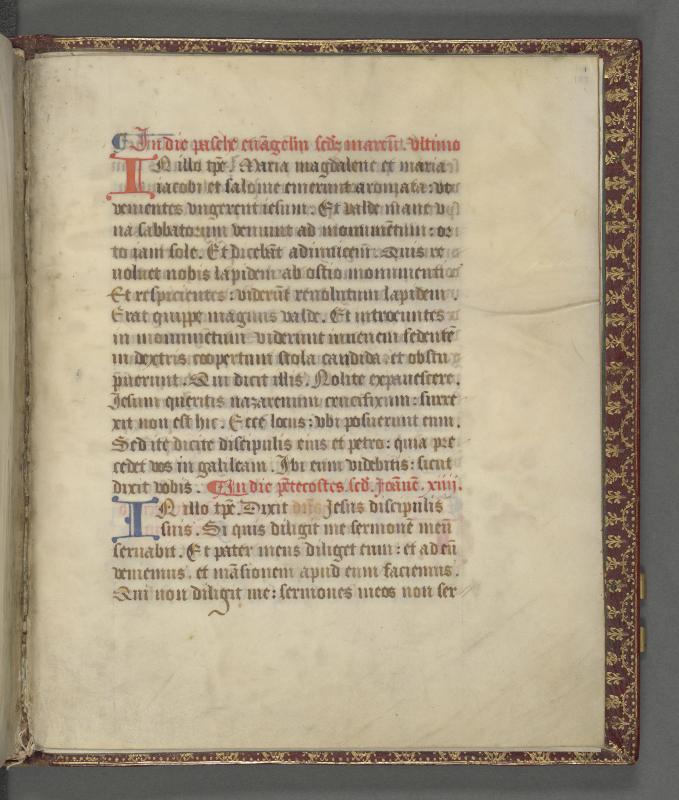 In die pasche euãgeliũ scdz marcũ. vltimo
IN illo tp̃e. Maria magdalene et maria
iacobi et salome emerunt aromata: vt
venientes vngerent iesum. Et valde mane v
na sabbatorum veniunt ad monumẽtum: or
to iam sole. Et dicebãt adinuicem. Quis re
uoluet nobis lapidem ab ostio monumenti
Et respicientes: viderũt reuolutum lapidem.
Erat quippe magnus valde. Et introeuntes
in monumẽtum viderunt iuuenem sedentẽ
in dextris coopertum stola candida. et obstu
puerunt. Qui dicit illis. Nolite expauescere.
Iesum queritis nazarenum crucifixum: surre
xit non est hic. Ecce locus: vbi posuerunt eum.
Sed ite dicite discipulis eius et petro: quia pre
cedet vos in galileam. Ibi eum videbitis: sicut
dixit vobis. In die pẽtecostes. scd. Joãnẽ. xiiij.
IN illo tp̃e. Dixit dñs Jesus discipulis
suis. Si quis diligit me sermonẽ meũ
seruabit. Et pater meus diliget eum: et ad eũ
veniemus. et mãsionem apud eum faciemus.
Qui non diligit me: sermones meos non ser